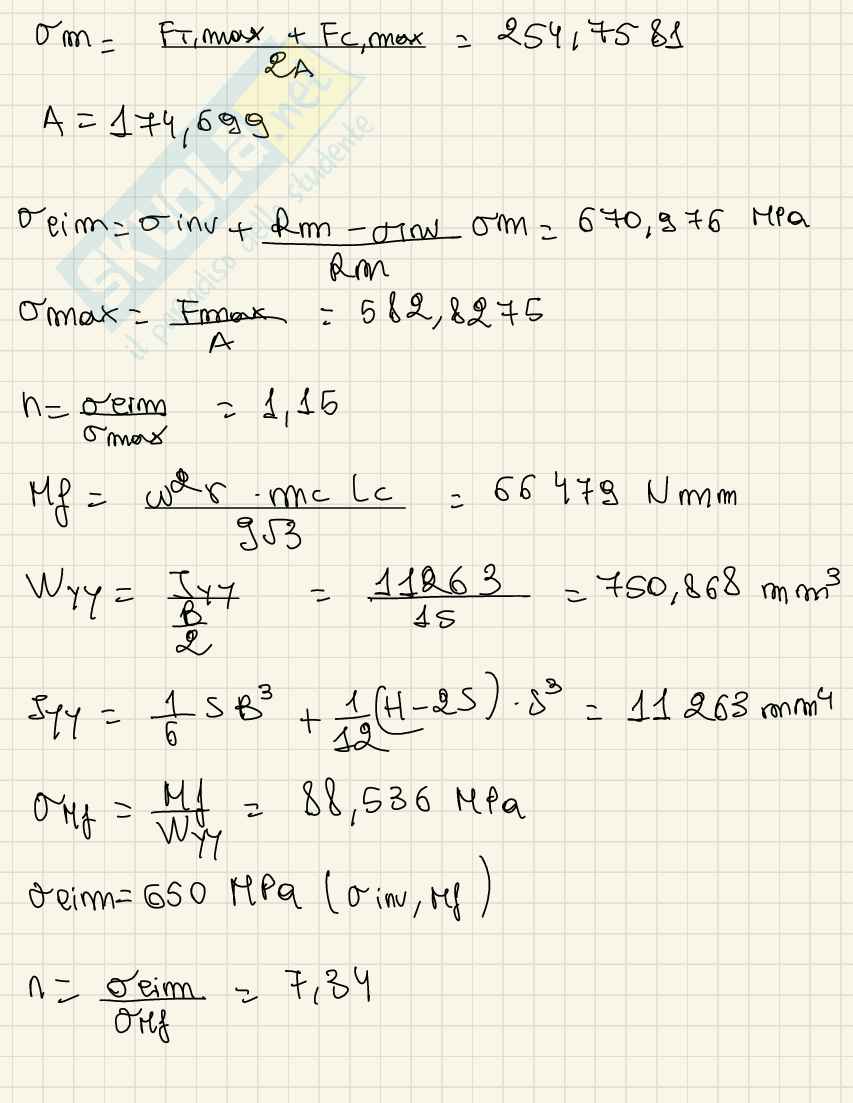 σm = (FT,max + Fc,max) / 2A = 254,7581
A = 174,699
σeim = σinv + (Rm - σinv) / Rm σm = 670,976 MPa
σmax = Fmax / A = 582,8275
n = σeim / σmax = 1,15
Mf = ω²r · mc Lc / 9√3 = 66 479 Nmm
Wyy = Jyy / (B/2) = 11263 / 15 = 750,868 mm³
Jyy = 1/6 S B³ + 1/12 (H - 2S) · S³ = 11 263 mm⁴
σMf = Mf / Wyy = 88,536 MPa
σeim = 650 MPa (σinv, Mf)
n = σeim / σMf = 7,34
SKUOLA.net
il paradiso dello studente